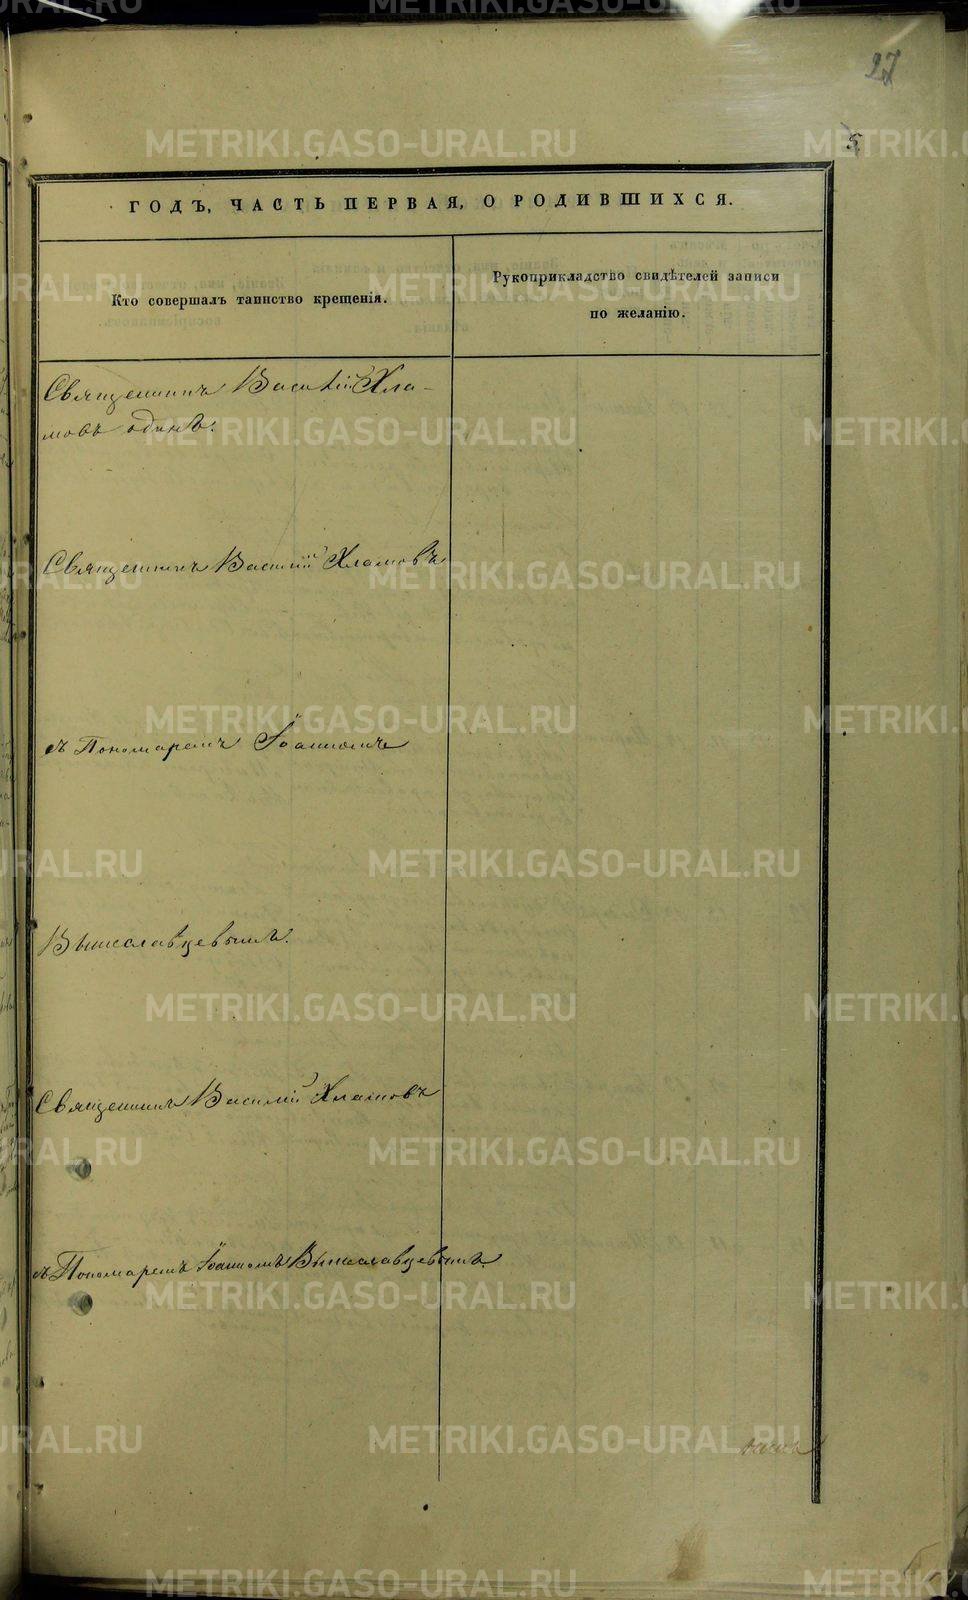 27
5
ГОДЪ, ЧАСТЬ ПЕРВАЯ, О РОДИВШИХСЯ.
Кто совершалъ таинство крещенія.
Рукоприкладство свидѣтелей записи
по желанію.
Священникъ Василій Хла-
мовъ одинъ.
Священникъ Василій Хламовъ
съ Пономаремъ Іоанномъ
Вышеславцевымъ.
Священникъ Василій Хламовъ
съ Пономаремъ Іоанномъ Вышеславцевымъ.
METRIKI.GASO-URAL.RU